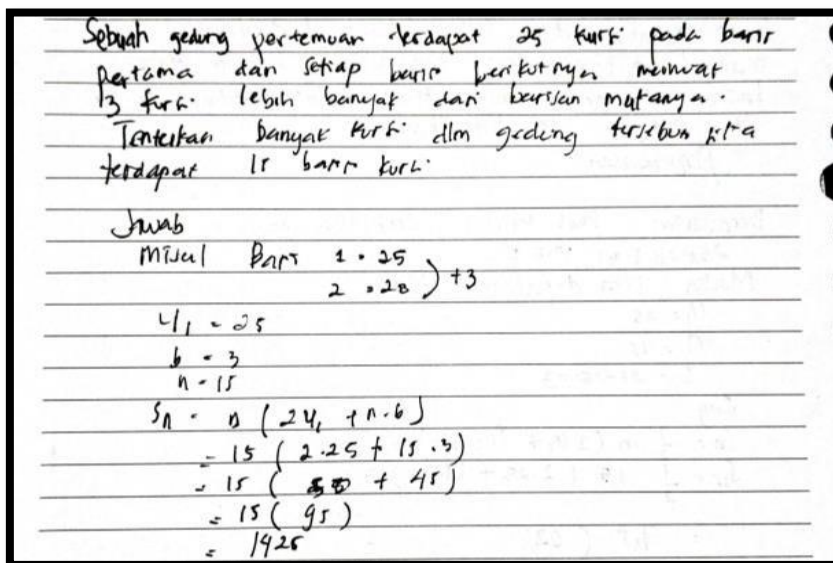 Sebuah gedung pertemuan terdapat 25 kursi pada baris
pertama dan setiap baris berikutnya memuat
3 kursi lebih banyak dari barisan mukanya.
Tentukan banyak kursi dlm gedung tersebut
terdapat 15 baris kursi
Jawab
Misal Baris 1 = 25
2 = 28 ) +3
U1 = 25
b = 3
n = 15
Sn = n ( 2U1 + n.b)
= 15 ( 2.25 + 15.3)
= 15 ( 50 + 45)
= 15 ( 95)
= 1425